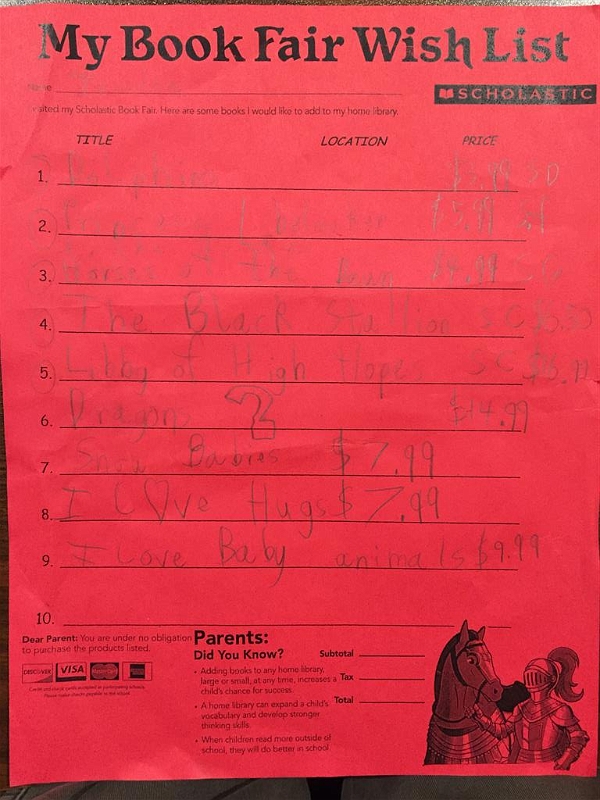 My Book Fair Wish List
Name
SCHOLASTIC
visited my Scholastic Book Fair. Here are some books I would like to add to my home library.
TITLE LOCATION PRICE
1. $3.99
2. $5.99
3. Horses of the $4.99
4. The Black Stallion SC
5. Libby of High Hopes SC
6. Dragons ? $14.99
7. Snow Babies $7.99
8. I L♡ve Hugs $7.99
9. I Love Baby animals $9.99
10.
Dear Parent: You are under no obligation
to purchase the products listed.
DISCOVER VISA
Credit and debit cards accepted in participating schools.
Please make checks payable to the school.
Parents:
Did You Know?
• Adding books to any home library,
large or small, at any time, increases a
child's chance for success.
• A home library can expand a child's
vocabulary and develop stronger
thinking skills.
• When children read more outside of
school, they will do better in school
Subtotal
Tax
Total